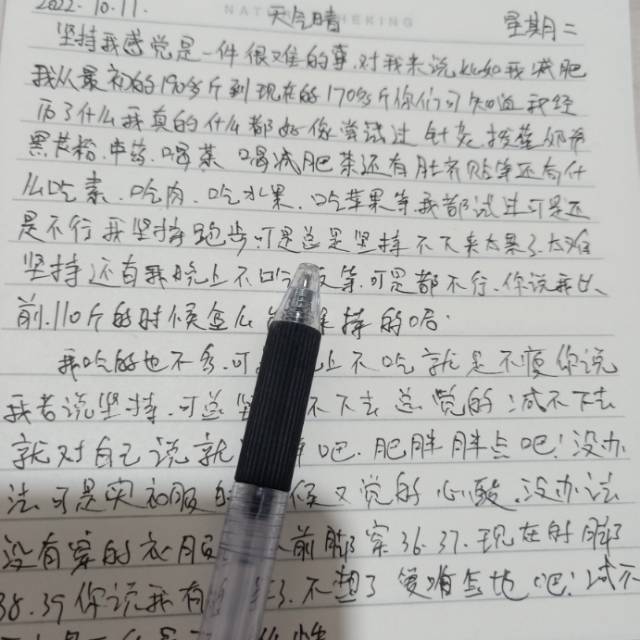 2022.10.11. 天气晴 星期二
坚持我感觉是一件很难的事.对我来说比如我减肥
我从最初的190多斤到现在的170多斤你们可知道我经
历了什么我真的什么都如像尝试过 针灸.按摩
黑 中药.喝茶 喝减肥茶还有肚脐贴等还有什
么吃素.吃肉.吃水果.吃苹果等.我都试过可是还
是不行我坚持跑步.可是总是坚持不下来太累了太难
坚持还有我晚上不吃 等.可是都不行.你说我以
前.110斤的时候怎么 持的呢.
我吃的也不多.可 上不吃就是不瘦你说
我老说坚持.可总坚 不下去总觉的减不下去
就对自己说就 吧.肥胖胖点吧!没办
法.可是买衣服的 候又觉的心酸.没办法
没有穿的衣服 前脚穿36.37.现在的脚
38.39你说我有 .不想了 爱 吧!减不